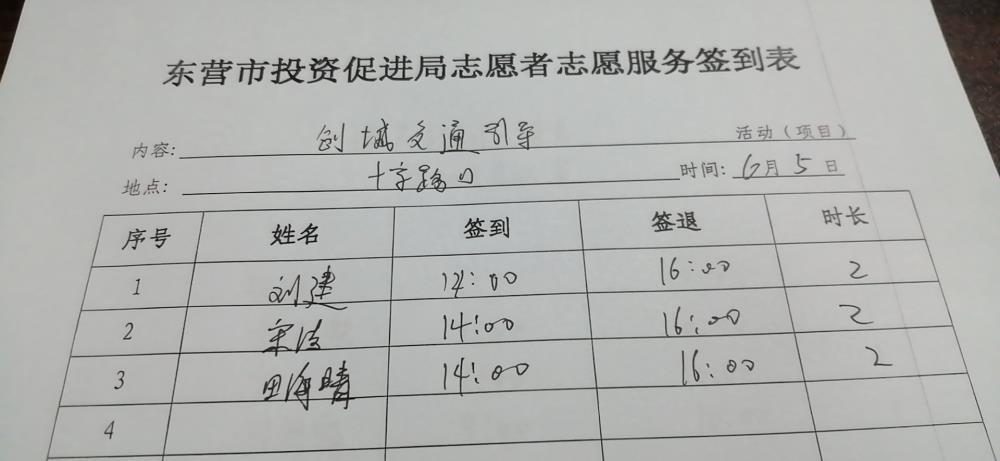 东营市投资促进局志愿者志愿服务签到表
内容: 创城交通引导 活动（项目）
地点: 十字路口 时间: 6月5日
序号 姓名 签到 签退 时长
1 刘建 14:00 16:00 2
2 宋洁 14:00 16:00 2
3 田海晴 14:00 16:00 2
4